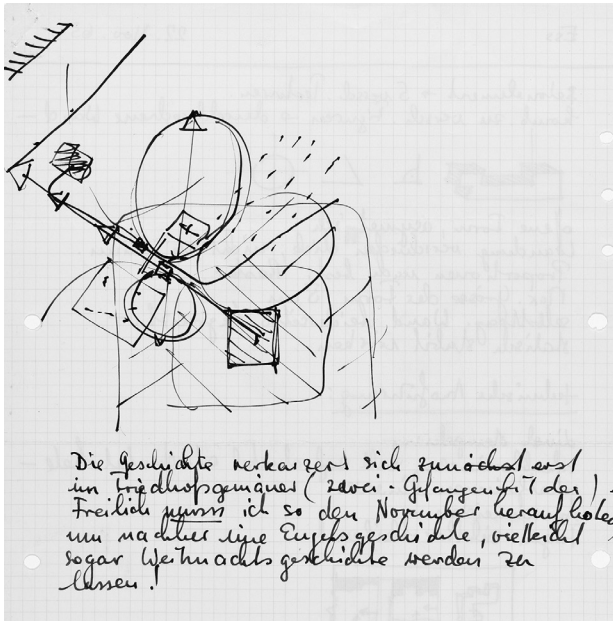 Die Geschichte verkarzert sich zunächst erst
im Friedhofsgemäuer (zwei-Gefangenhit der).
Freilich muss ich so den November heraufholen
um nachher eine Engelsgeschichte, vielleicht
sogar Weihnachtsgeschichte werden zu
lassen!